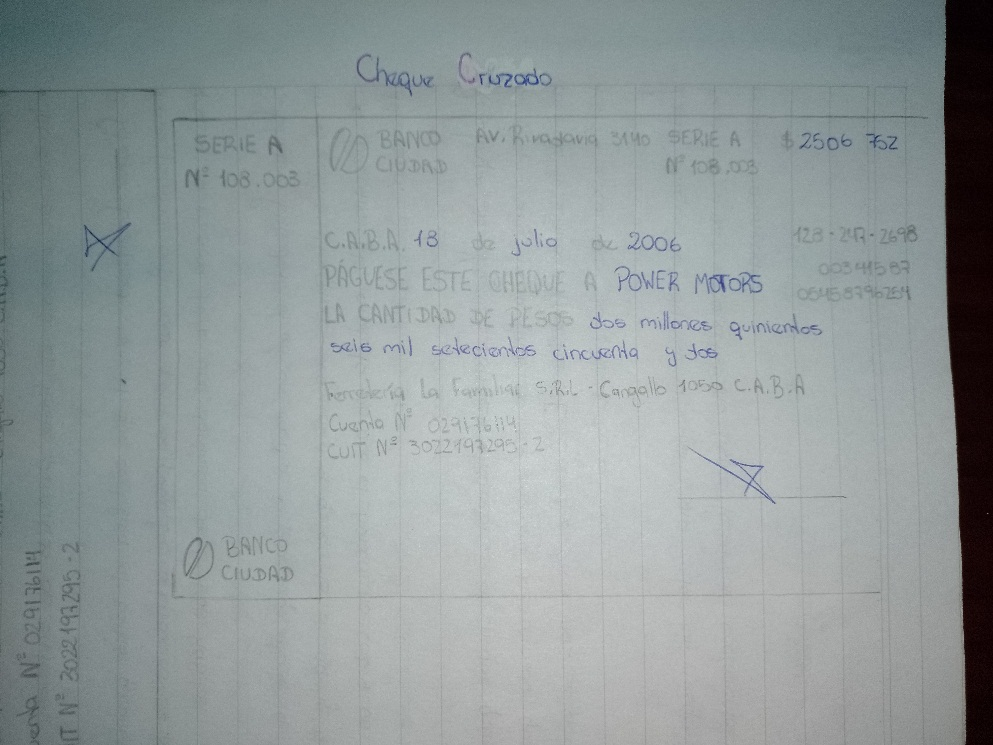 Cheque Cruzado
SERIE A
Nº 108.003
BANCO CIUDAD
Av. Rivadavia 3140
SERIE A
Nº 108.003
$ 2506 752
C.A.B.A. 18 de julio de 2006
PÁGUESE ESTE CHEQUE A POWER MOTORS
LA CANTIDAD DE PESOS dos millones quinientos
seis mil setecientos cincuenta y dos
Ferretería La Familiar S.R.L - Cangallo 1050 C.A.B.A
Cuenta Nº 029176114
CUIT Nº 3022197295-2
BANCO
CIUDAD
Nº 029176114
Nº 3022197295-2